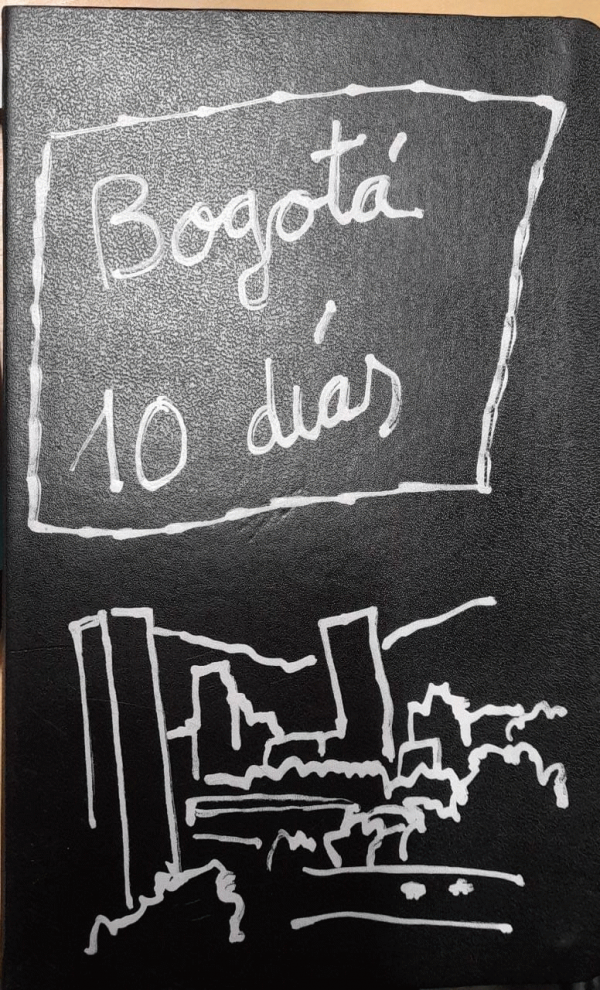 Bogotá
10 días